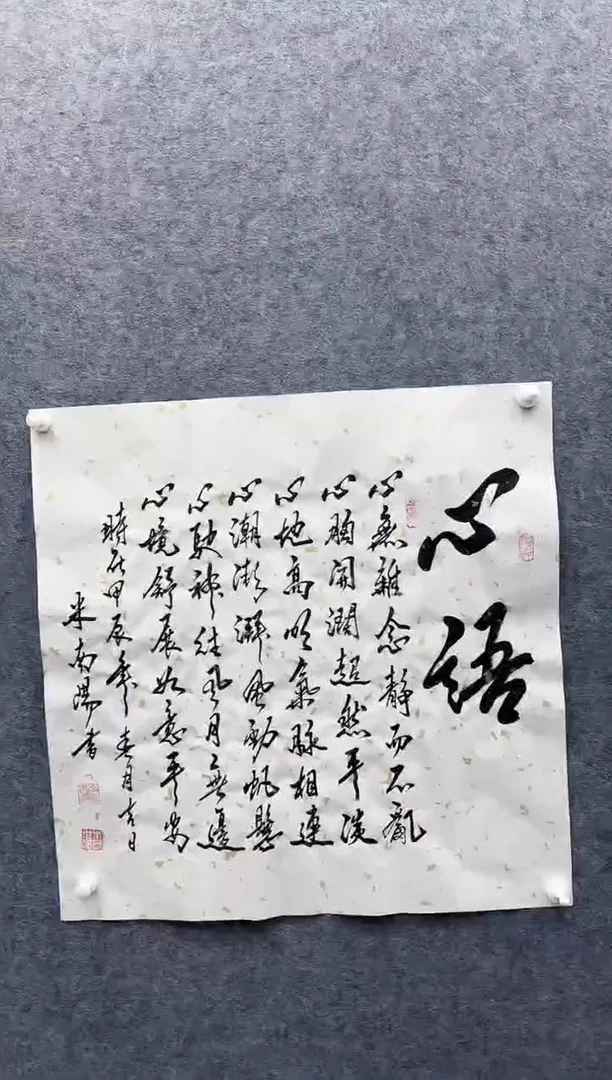 心语
心無雜念静而不亂
心胸開濶超然平淡
心地高明氣脉相連
心潮澎湃風動帆懸
心馳神往風月無邊
心境舒展如意平安
時在甲辰年春月吉日
米南陽書